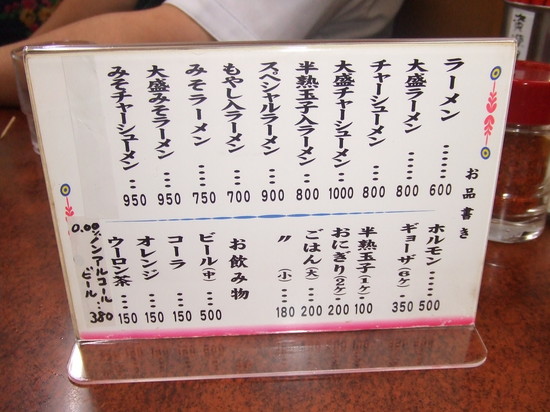 お品書き
ラーメン……600
大盛ラーメン……800
チャーシューメン……800
大盛チャーシューメン…1000
半熟玉子入ラーメン…800
スペシャルラーメン…900
もやし入ラーメン…700
みそラーメン……750
大盛みそラーメン……950
みそチャーシューメン…950
ホルモン……500
ギョーザ(6ヶ)…350
半熟玉子(1ヶ)…100
おにぎり(2ヶ)…200
ごはん(大)…200
〃(小)…180
お飲み物
ビール(中)…500
コーラ……150
オレンジ……150
ウーロン茶……150
0.00%ノンアルコールビール…380